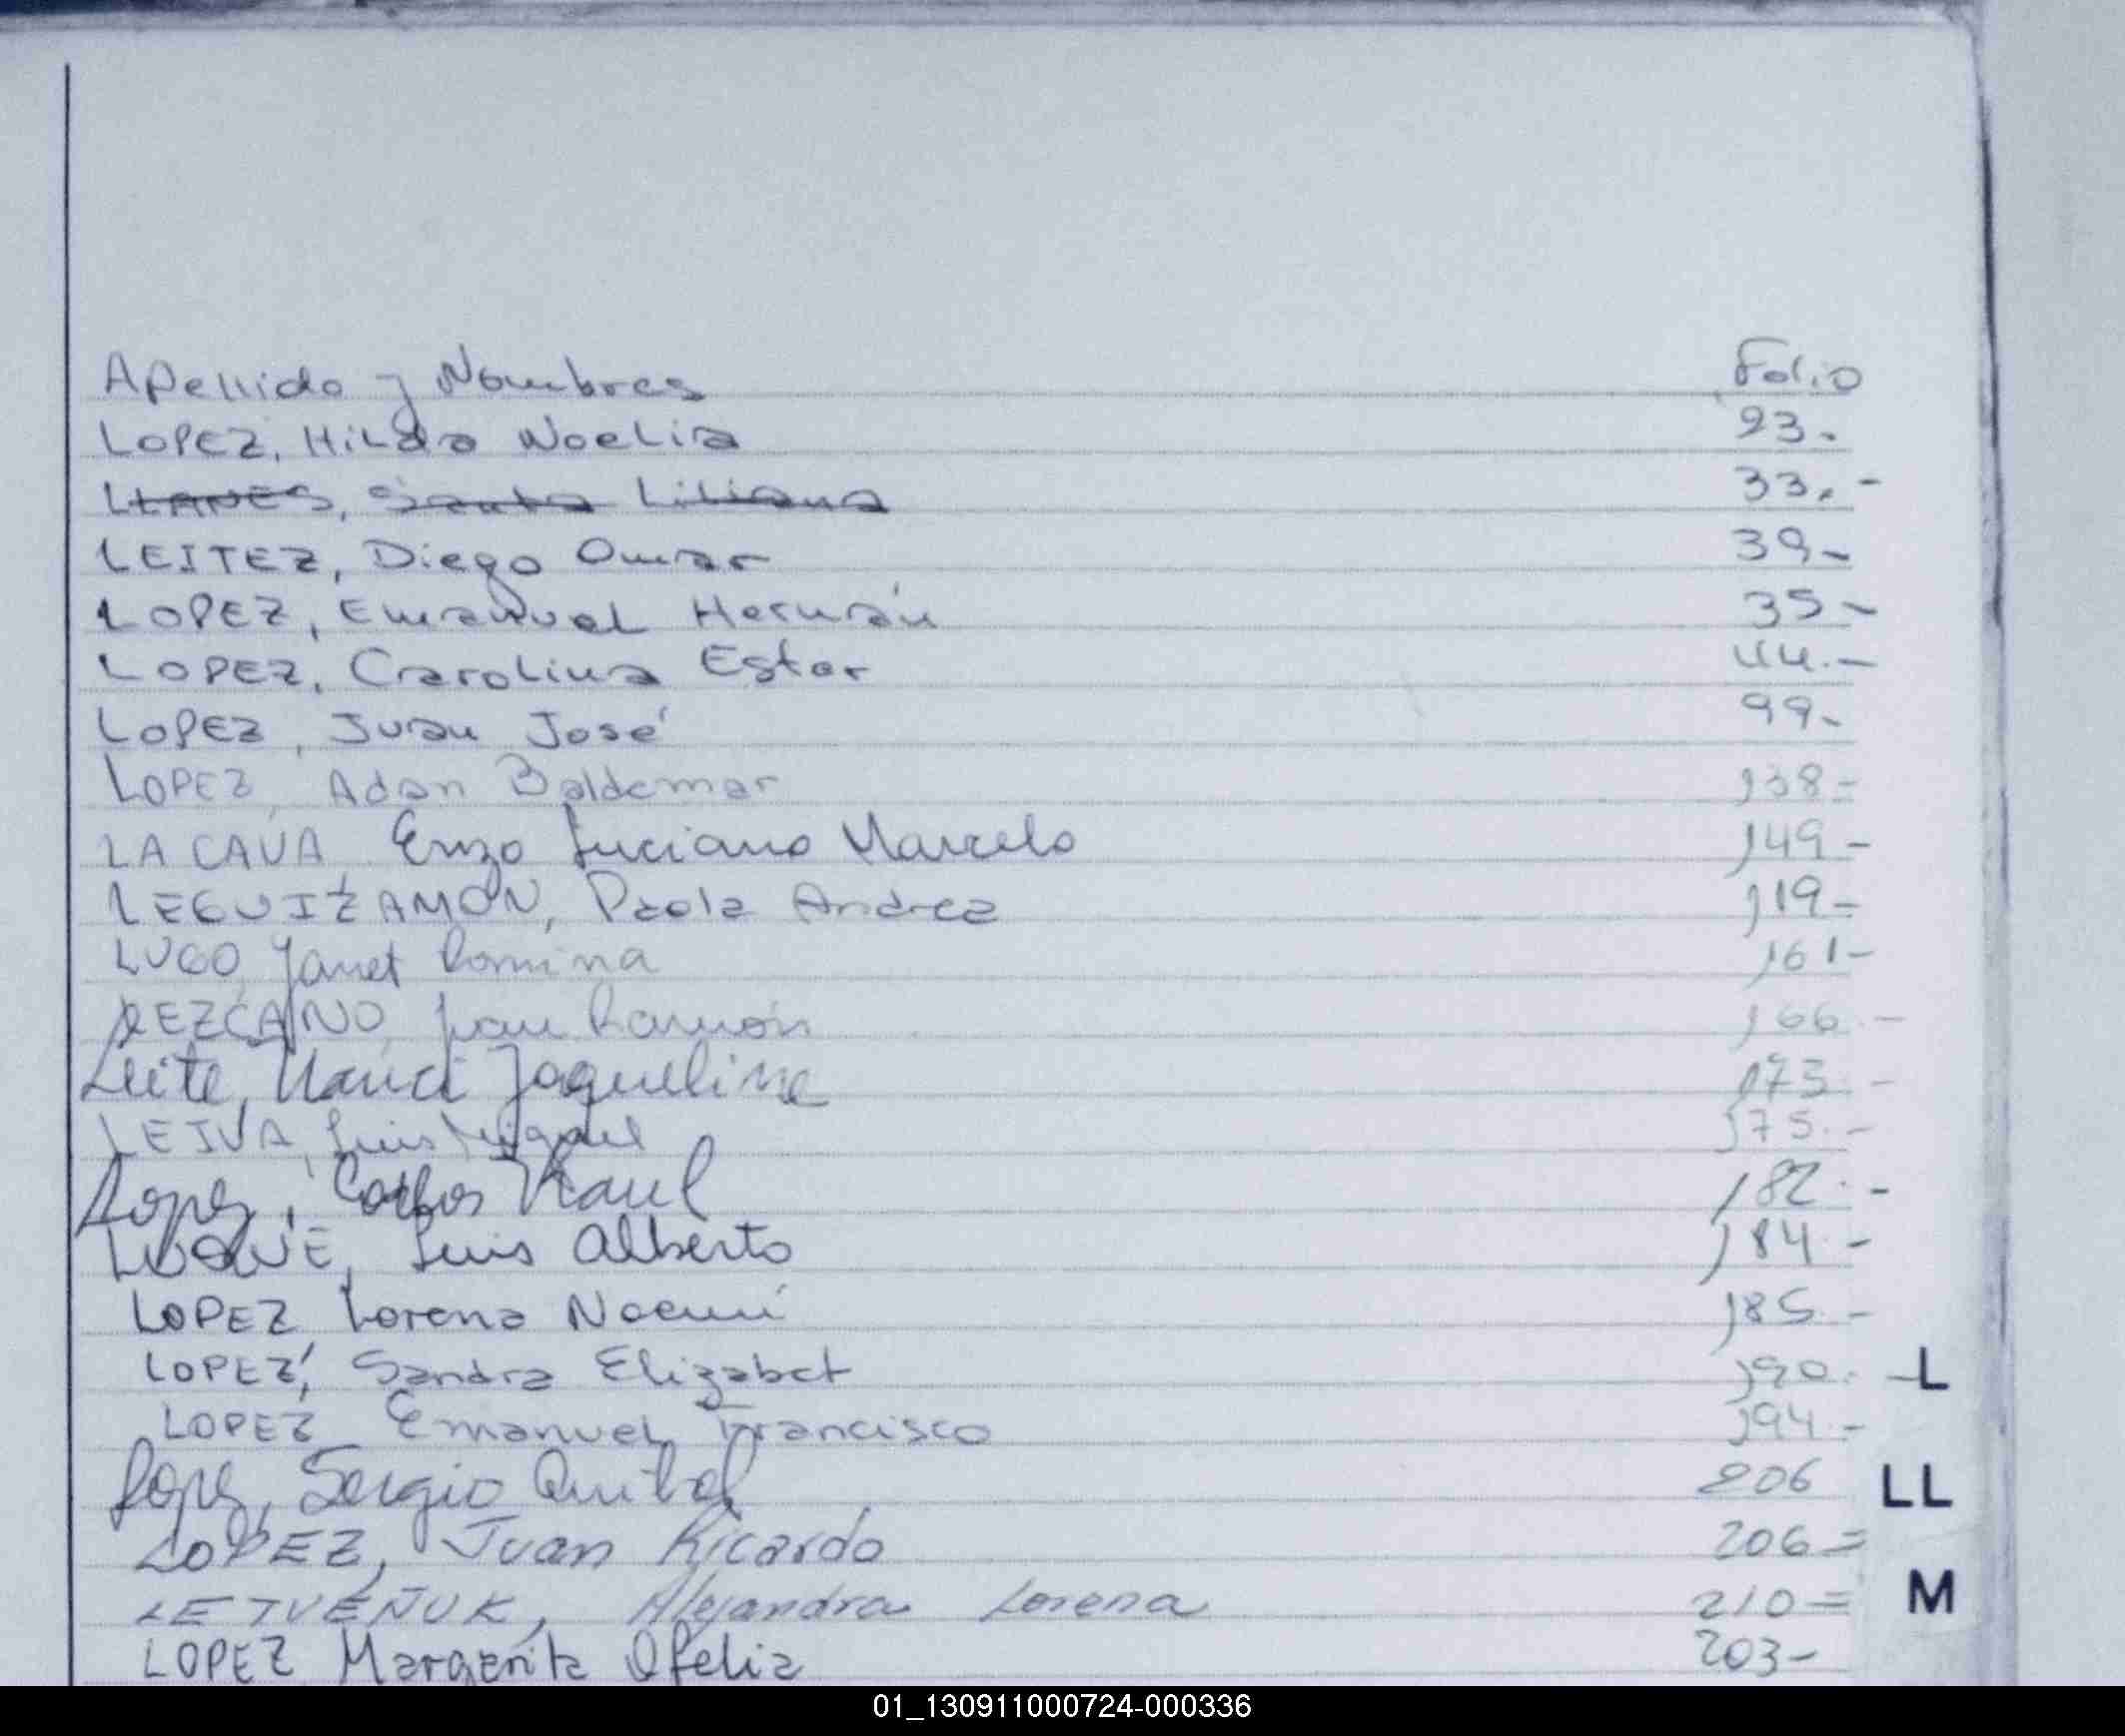 Apellido y Nombres Folio
LOPEZ, Hilda Noelia 23.
LLANES, Santa Liliana 33.-
LEITEZ, Diego Omar 39-
LOPEZ, Emanuel Hernán 35-
LOPEZ, Carolina Ester 44.-
LOPEZ, Juan José 99-
LOPEZ, Adan Baldemar 138-
LA CAVA, Enzo Luciano Marcelo 149-
LEGUIZAMON, Paola Andrea 119-
LUGO, Janet Romina 161-
LEZCANO, Juan Ramón 166.-
Leite, Nanci Jaqueline 173.-
LEIVA, Luis Miguel 175.-
Lopez, Carlos Raul 182.-
LUQUE, Luis Alberto 184.-
LOPEZ, Lorena Noemí 185.-
LOPEZ, Sandra Elizabet 190.- L
LOPEZ Emanuel Francisco 194-
Lopez, Sergio Anibal 206 LL
LOPEZ, Juan Ricardo 206=
LETVEÑUK, Alejandra Lorena 210= M
LOPEZ Margarita Ofelia 203-
01_130911000724-000336